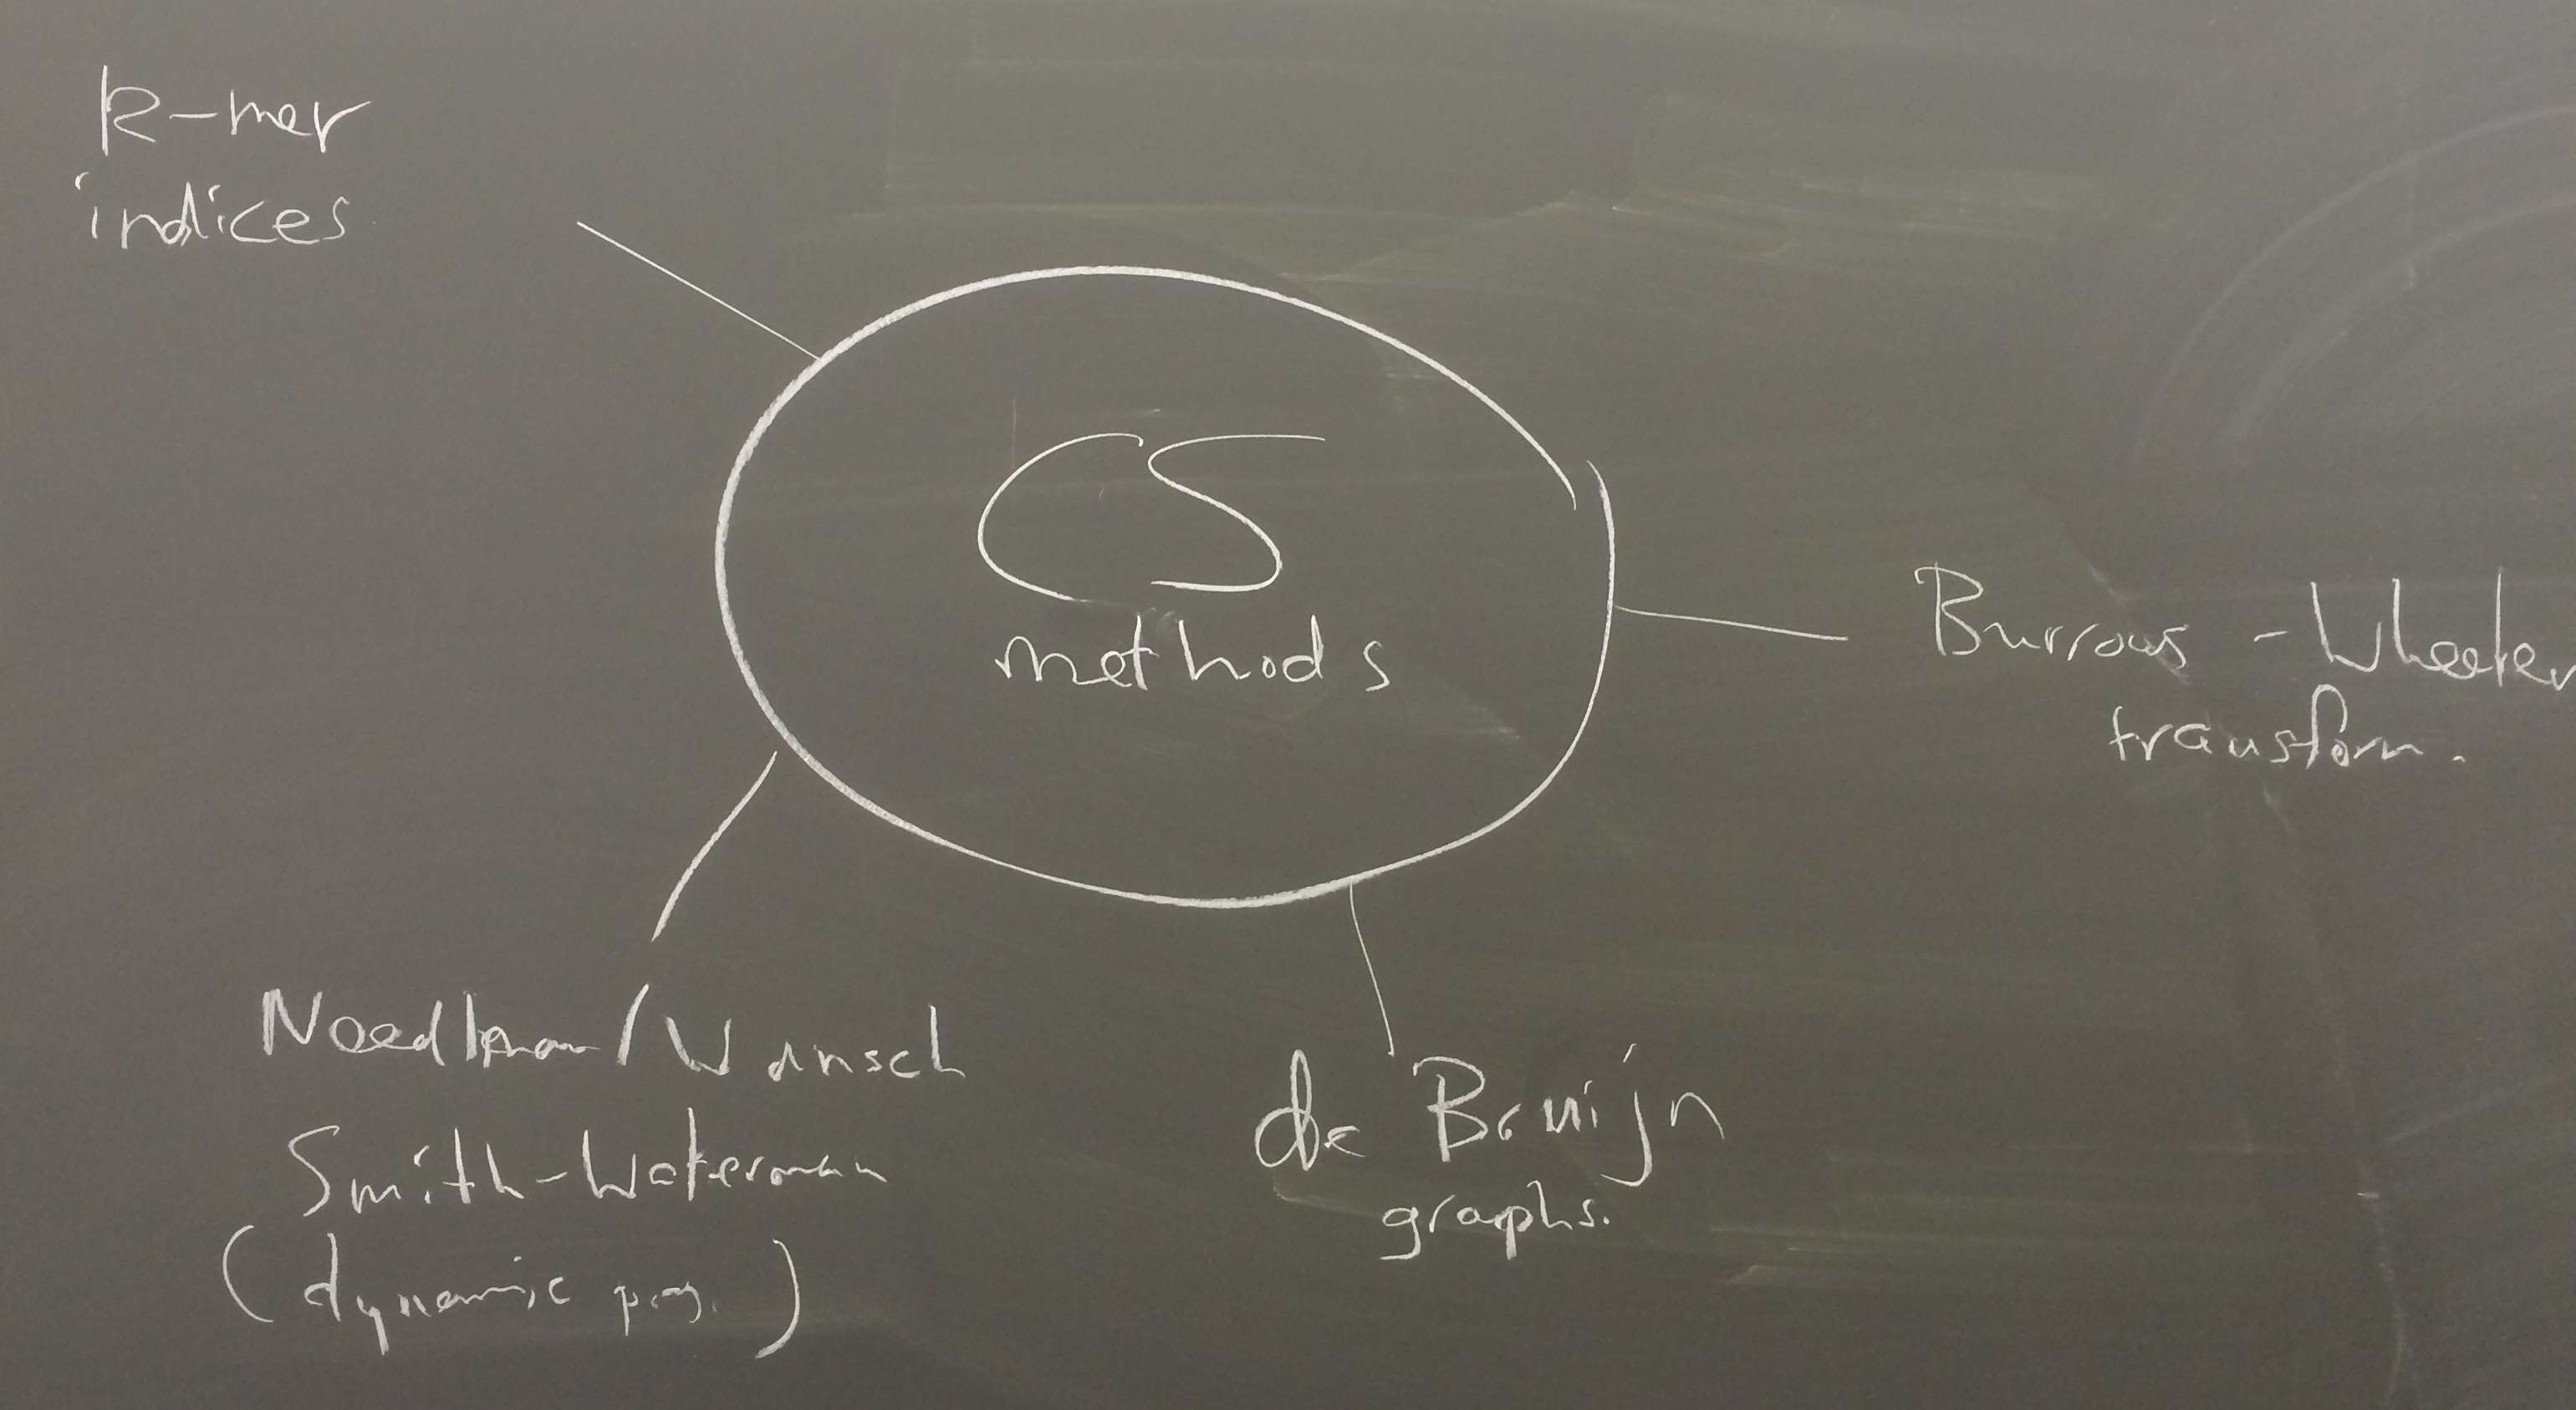 k-mer
indices
CS
methods
Burrows - Wheeler
transform.
Needleman/Wunsch
Smith-Waterman
(dynamic prog.)
de Bruijn
graphs.